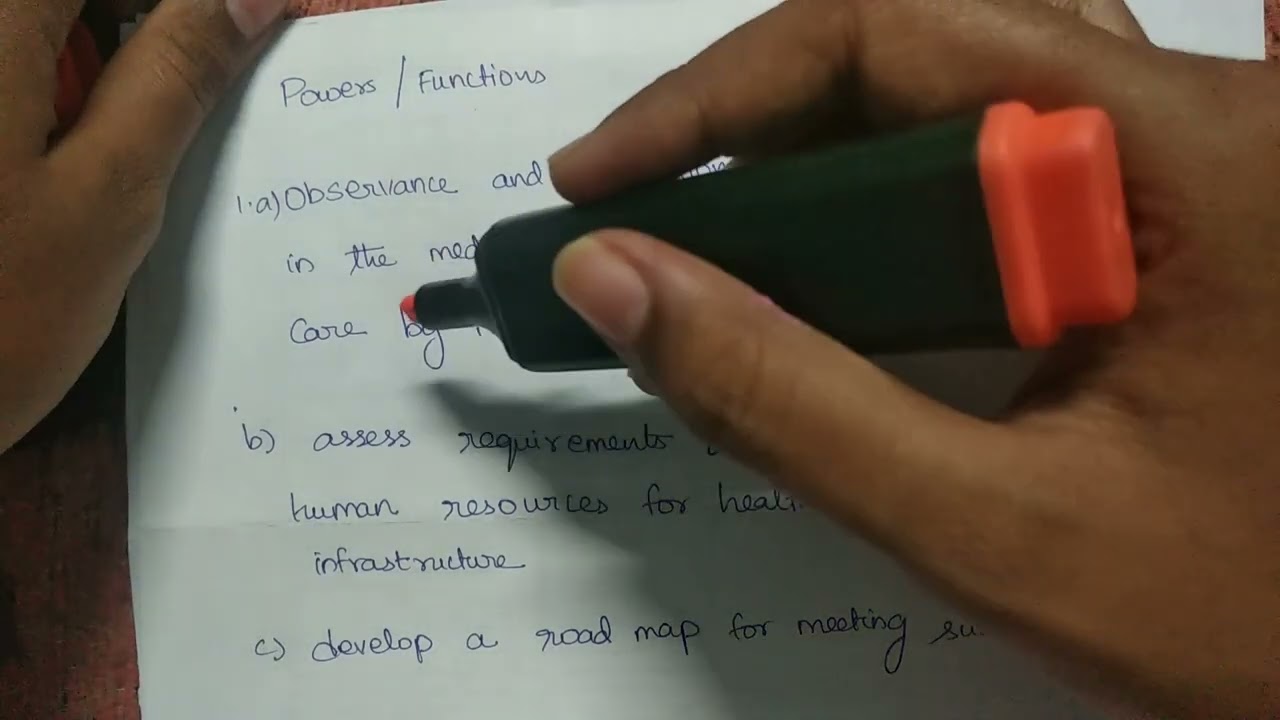 Powers / Functions
1.a) Observance and
in the
Care by
b) assess requirements
human resources for
infrastructure
c) develop a road map for meeting